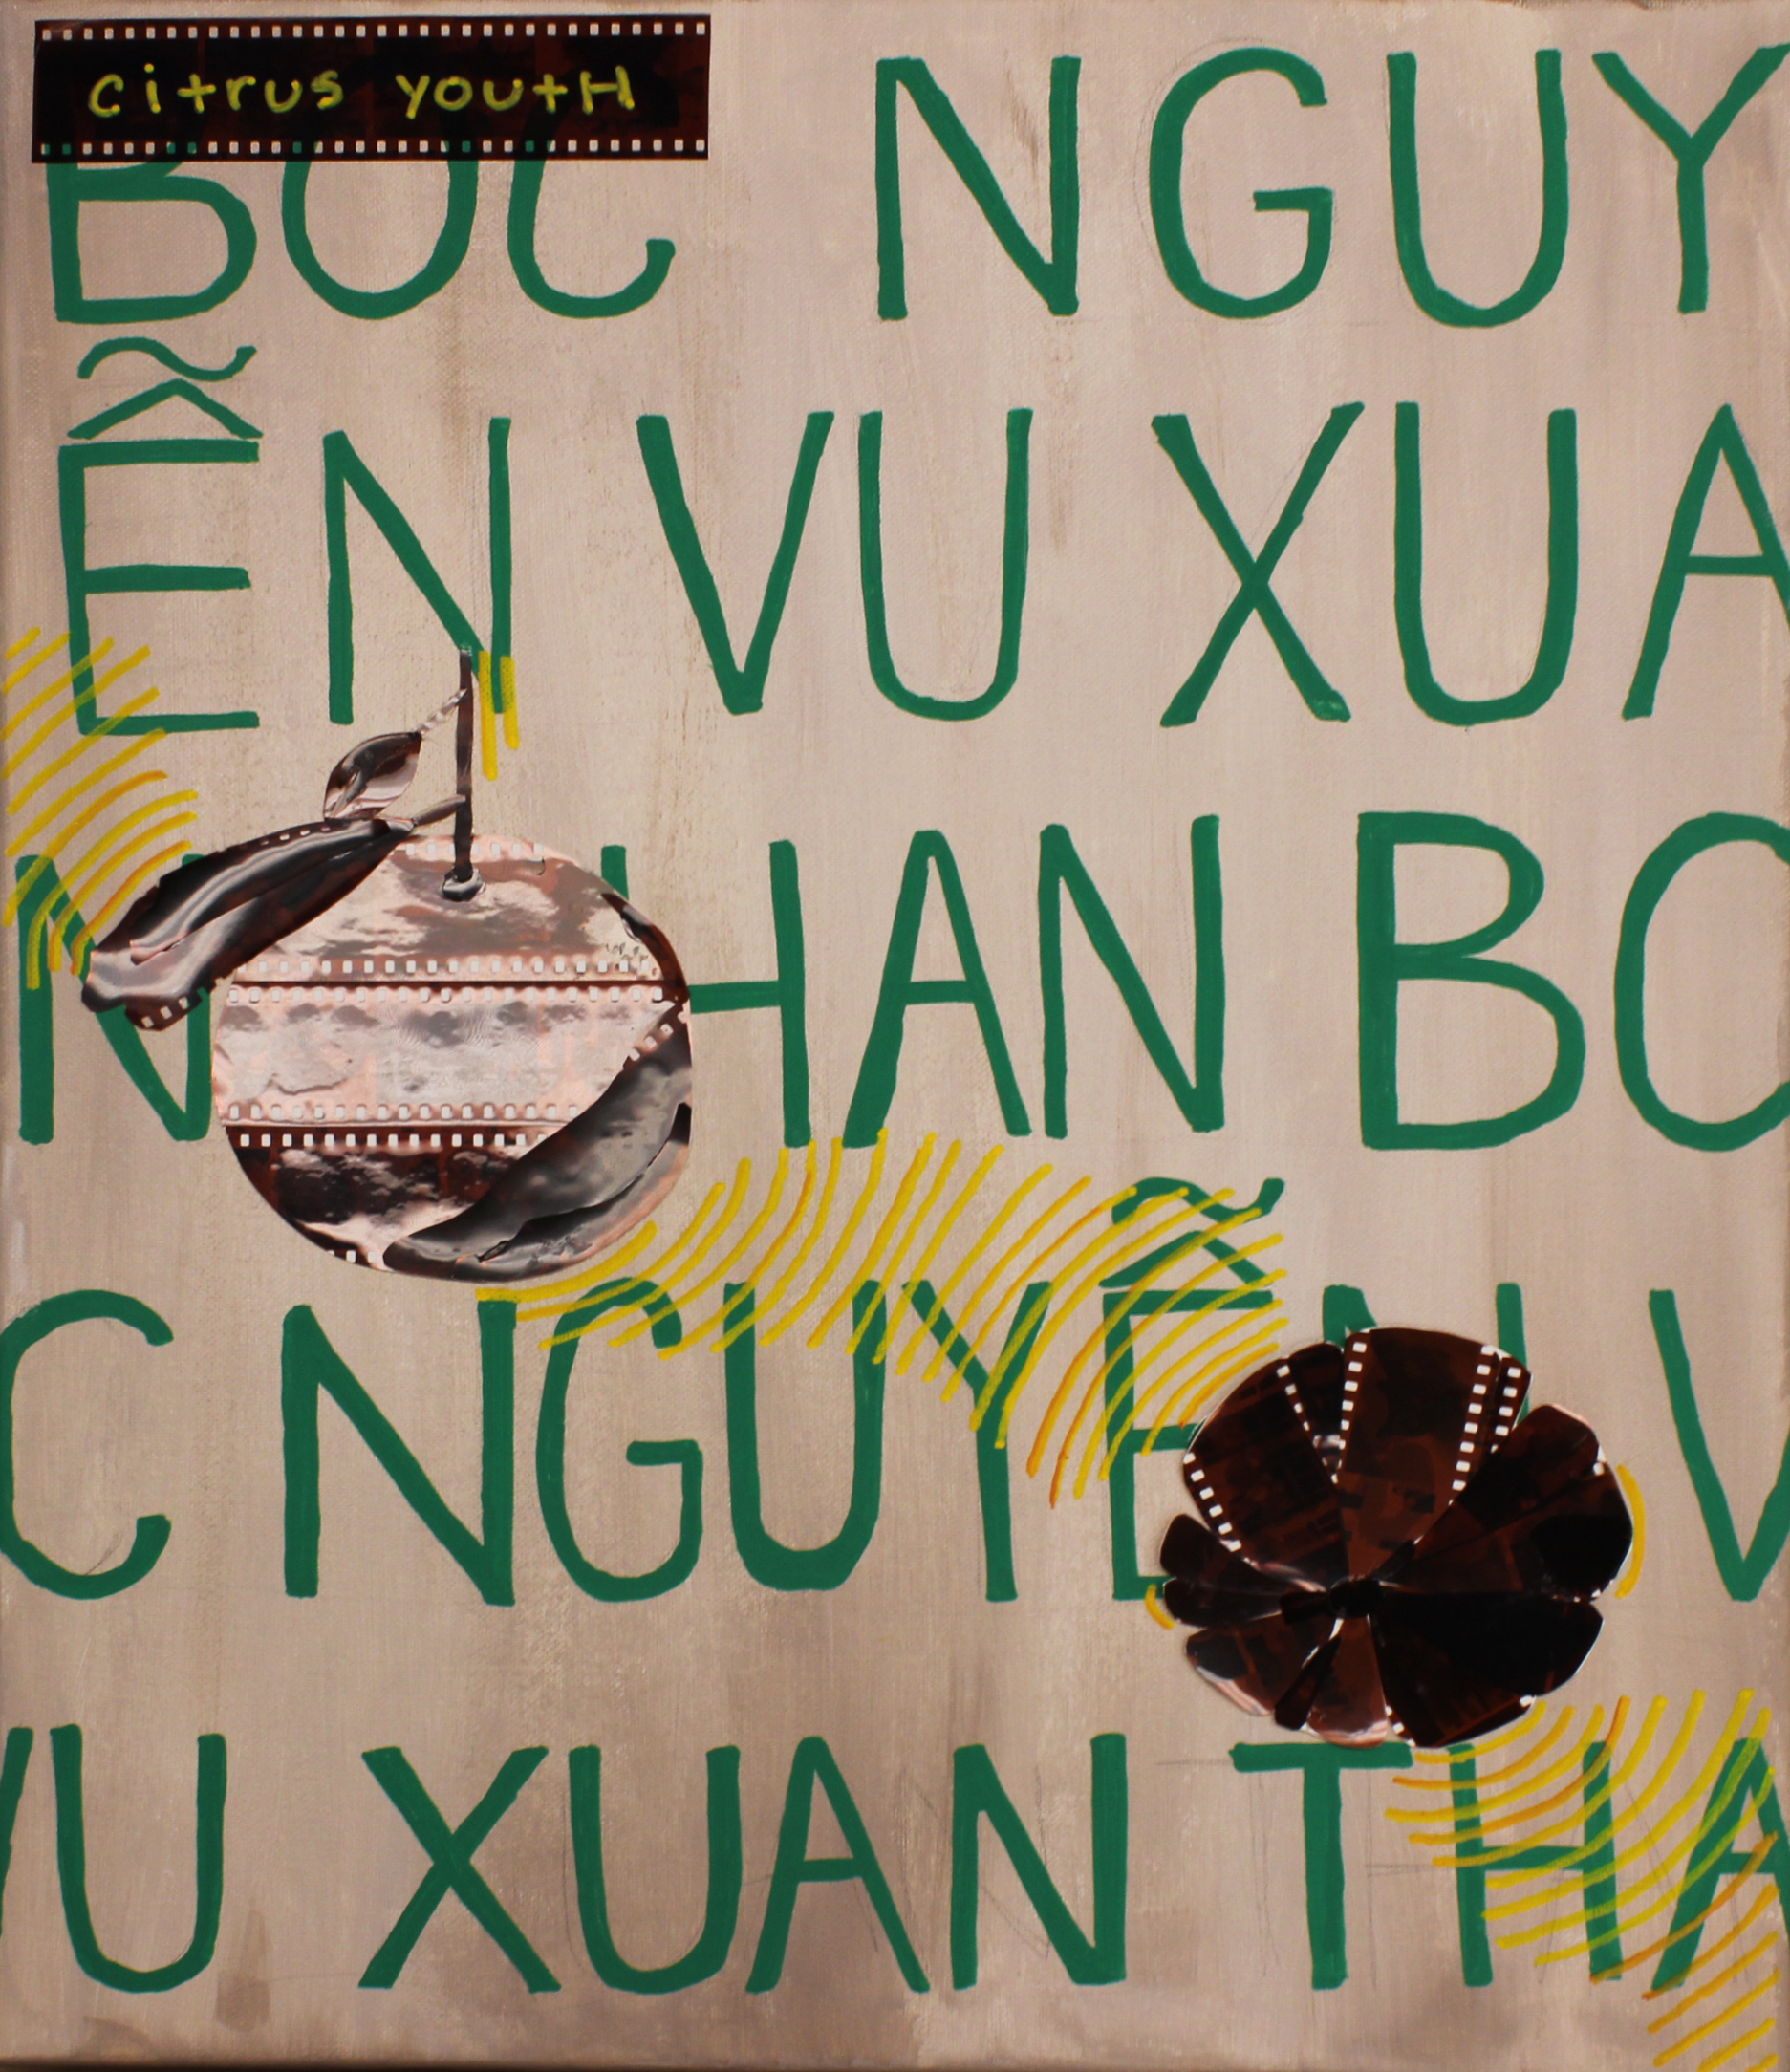 citrus youth
BOC NGUY
ỄN VU XUA
N HAN BO
C NGUYỄN V
VU XUAN THA